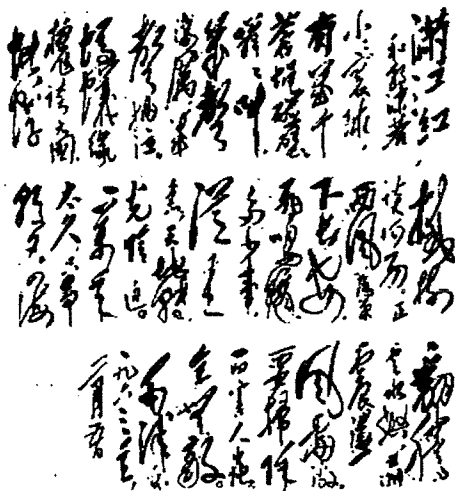 滿江紅
和郭沫若
小小寰球,
有幾个
蒼蠅碰壁。
嗡嗡叫,
幾聲
凄厲,幾
聲抽泣。
螞蟻緣
槐誇大國,
蚍蜉
撼樹
談何易。正
西風落葉
下長安,
飛鳴鏑。
多少事,
從來
急。天地轉,
光陰迫。
一萬年
太久,只爭
朝夕。四海
翻騰
雲水怒,五洲
震盪
風雷激。
要掃除
一切害人蟲,
全無敵。
毛澤東
一九六三年
二月五日